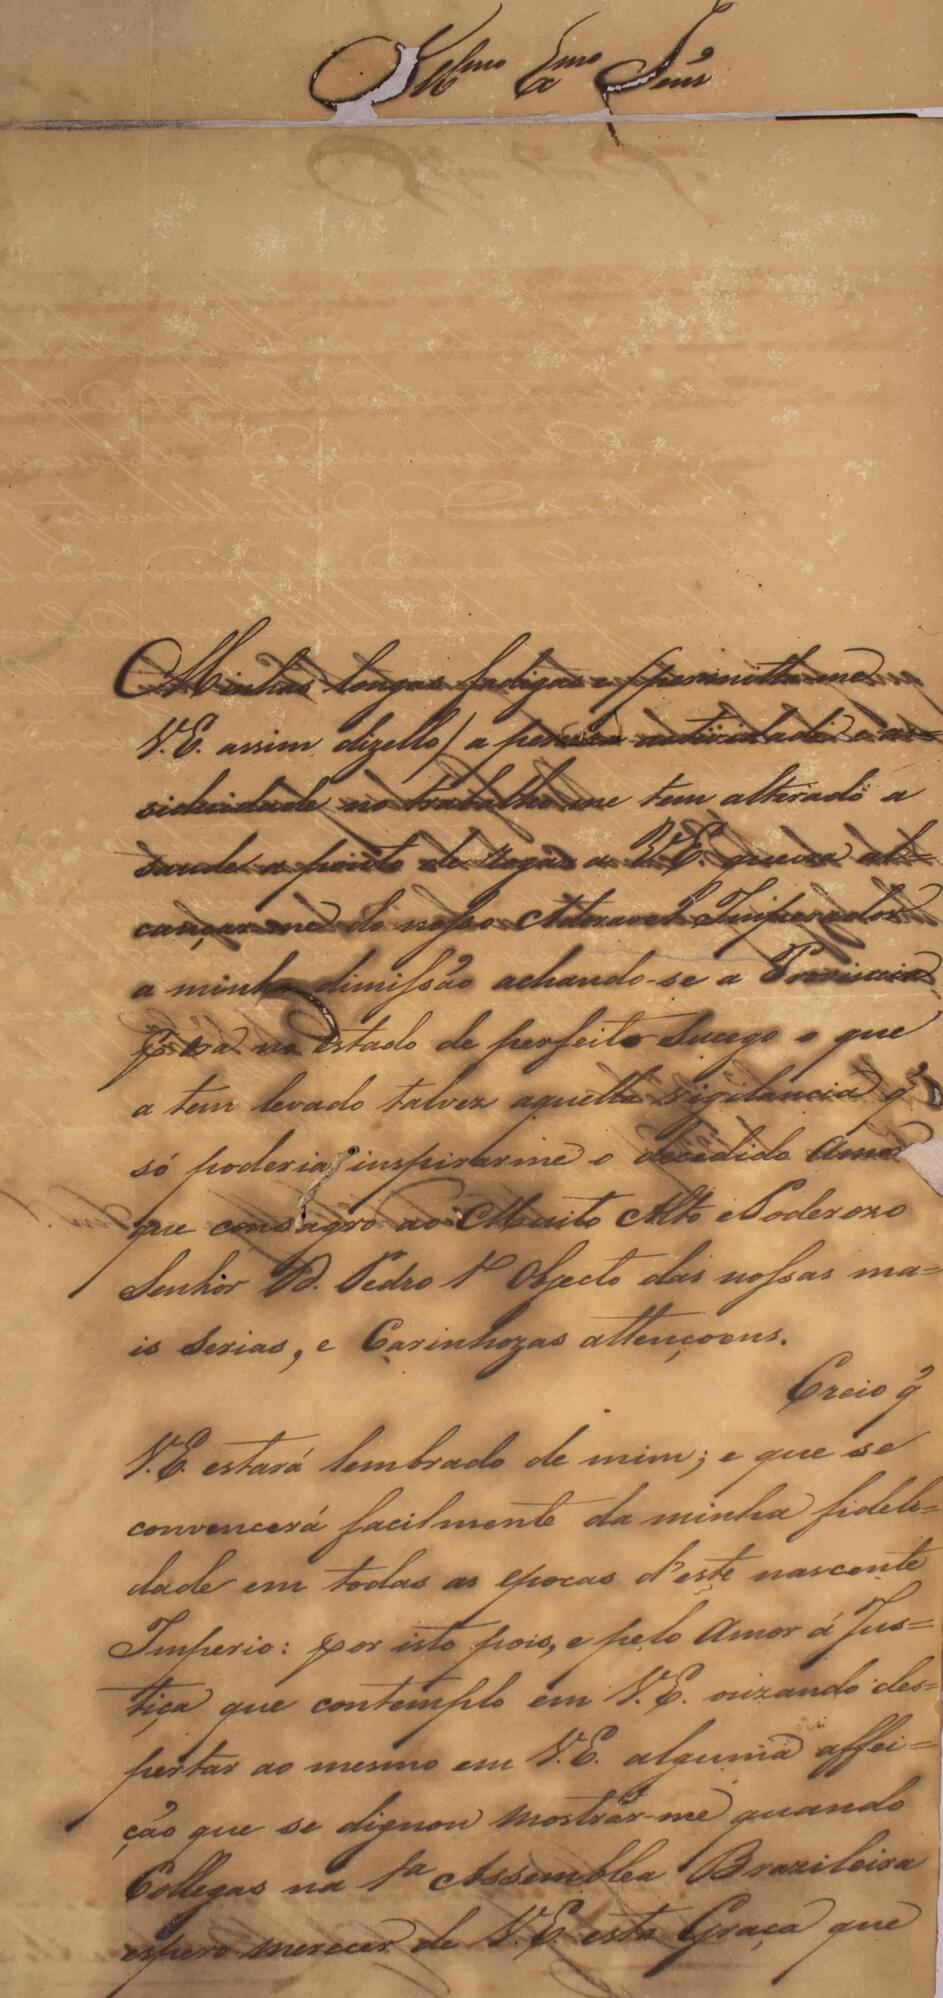 Illmo Exmo Senr
Minhas longas fadigas e (permitta me
V.E. assim dizello) a penoza actividade e as=
siduidade no trabalho me tem alterado a
saude a ponto de rogar a V.E. queira al=
cançar me do nosso Adoravel Imperador
a minha dimissão achando-se a Provincia
no estado de perfeito Sucego o que
a tem levado talvez aquella vigilancia q̃
só poderia inspirarme o decedido Amor
que consagro ao Muito Alto e Poderozo
Senhor D. Pedro 1º Objecto das nossas ma=
is serias, e Carinhozas attençoens.
Creio q̃
V.E. estará lembrado de mim; e que se
convencerá facilmente da minha fideli=
dade em todas as epocas d'este nascente
Imperio: por isto pois, e pelo Amor á Jus=
tiça que contemplo em V.E. ouzando des=
pertar ao mesmo em V.E. alguma affei=
ção que se dignou mostrar-me quando
Collegas na 1ª Assemblea Brazileira
espero merecer de V.E. esta Graça que